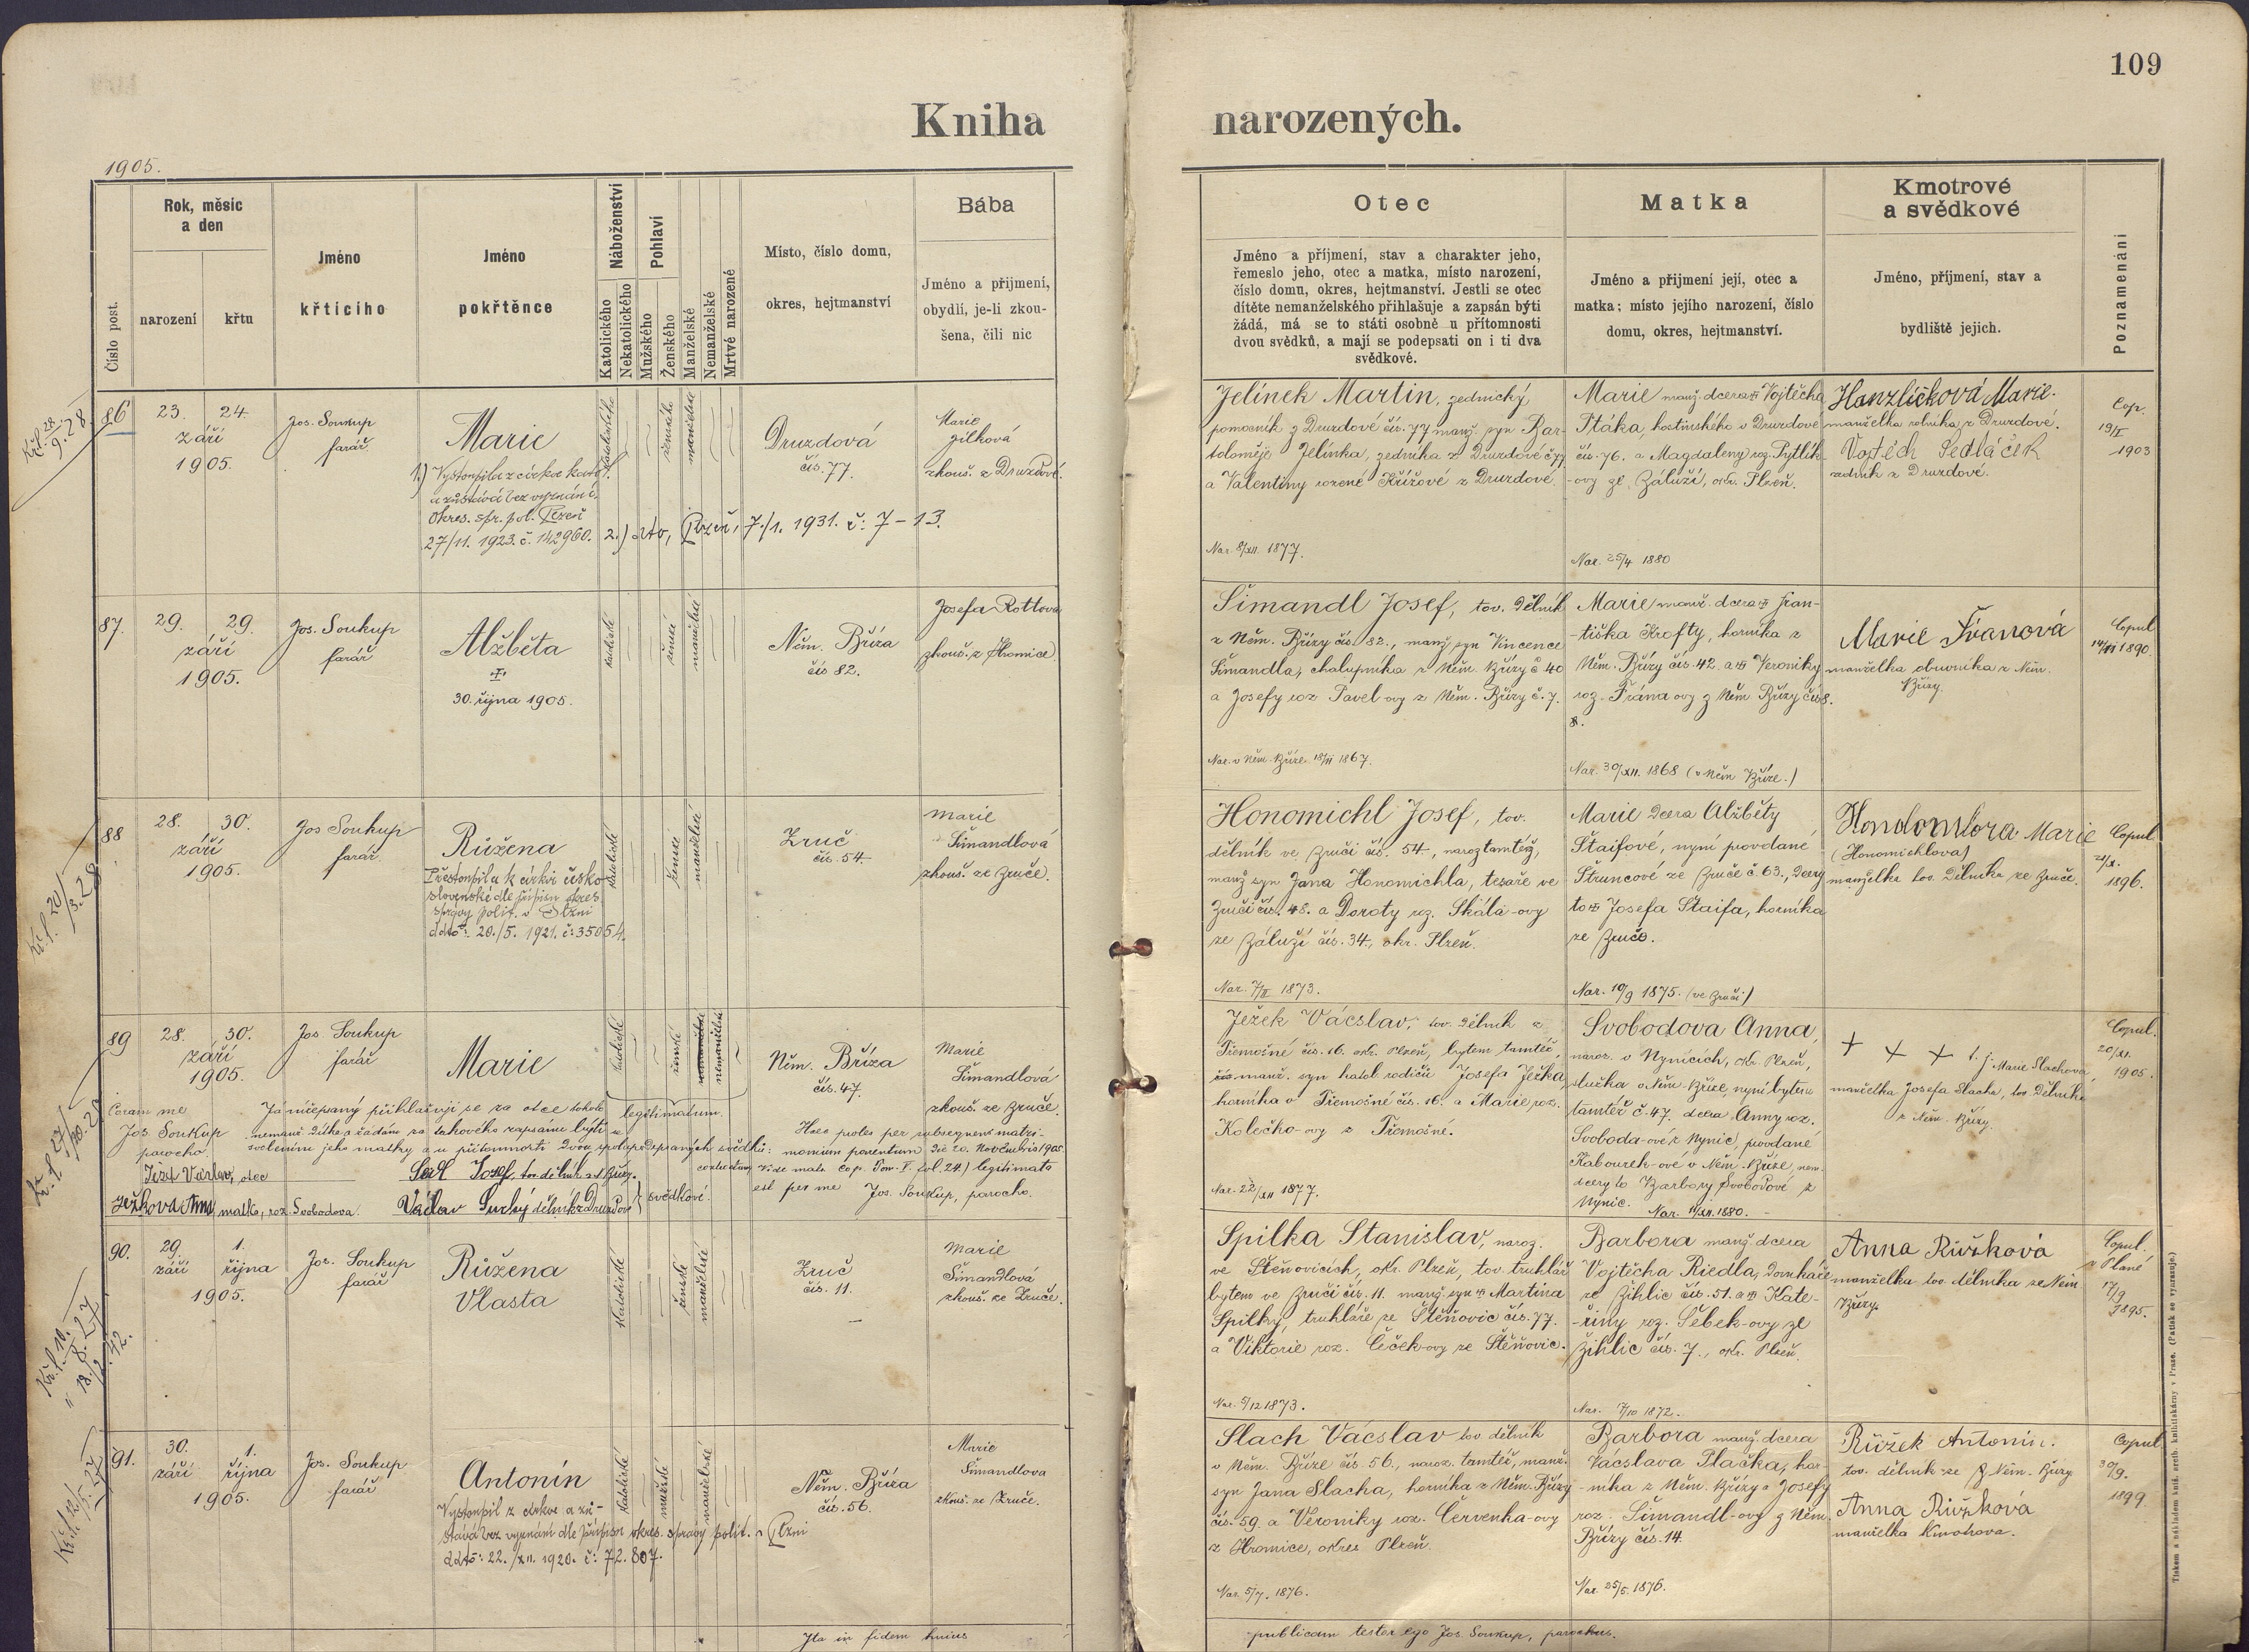 109
Kniha narozených.
1905.
Číslo post.
Rok, měsíc
a den
narození
křtu
Jméno
křticího
Jméno
pokřtěnce
Náboženství
Katolického
Nekatolického
Pohlaví
Mužského
Ženského
Manželské
Nemanželské
Mrtvé narozené
Místo, číslo domu,
okres, hejtmanství
Bába
Jméno a přijmení,
obydlí, je-li zkou-
šena, čili nic
Otec
Jméno a příjmení, stav a charakter jeho,
řemeslo jeho, otec a matka, místo narození,
číslo domu, okres, hejtmanství. Jestli se otec
dítěte nemanželského přihlašuje a zapsán býti
žádá, má se to státi osobně u přítomnosti
dvou svědků, a mají se podepsati on i ti dva
svědkové.
Matka
Jméno a přijmení její, otec a
matka; místo jejího narození, číslo
domu, okres, hejtmanství.
Kmotrové
a svědkové
Jméno, příjmení, stav a
bydliště jejich.
Poznamenání
86
23. 24.
září
1905.
Jos. Soukup
farář
Marie
1.) Vystoupila z církve katol.
a zůstává bez vyznání.
Okres. spr. pol. Plzeň
27/11. 1923. č. 142960. 2.) dto, Plzeň, 7./1. 1931. č: 7-13.
katolického
ženské
manželské
Druzdová
čís. 77.
Marie
Jílková
zkouš. z Druzdové.
Jelínek Martin, zednický
pomocník z Druzdové čís. 77 manž. syn Bar-
toloměje Jelínka, zedníka z Druzdové č 77
a Valentiny rozené Křížové z Druzdové.
Nar. 8/XII. 1877.
Marie manž. dcera Vojtěcha
Ptáka, hostinského v Druzdové
čís. 76. a Magdaleny roz. Pytlík-
-ovy ze Záluží, okr. Plzeň.
Nar. 25/4 1880
Hanzlíčková Marie.
manželka rolníka z Druzdové.
Vojtěch Sedláček
zedník z Druzdové.
Cop.
1903
87.
29. 29.
září
1905.
Jos. Soukup
farář
Alžběta
30. října 1905.
katolické
ženské
manželské
Něm. Bříza
čís 82.
Josefa Rottova
zkouš. z Hromice.
Šimandl Josef, tov. dělník
z Něm. Břízy čís. 82., manž syn Vincence
Šimandla, chalupníka z Něm. Břízy č 40
a Josefy roz Pavel-ovy z Něm. Břízy č. 7.
Nar. v Něm. Bříze 1867.
Marie manž. dcera Fran-
-tiška Krofty, horníka z
Něm. Břízy čís. 42. a Veroniky
roz. Frána-ovy z Něm Břízy čís 8.
Nar. 30/XII. 1868 (v Něm Bříze.)
Marie Franová
manželka obuvníka z Něm.
Břízy.
Copul
1890.
88
28. 30.
září
1905.
Jos Soukup
farář.
Růžena
Přestoupila k církvi česko-
slovenské dle přípisu okres.
správy polit. v Plzni
ddto: 20./5. 1921. č: 35054.
katolické
ženské
manželské
Zruč
čís. 54.
Marie
Šimandlová
zkouš. ze Zruče.
Honomichl Josef, tov.
dělník ve Zruči čís. 54., naroz tamtéž,
manž syn Jana Honomichla, tesaře ve
Zruči čís. 48. a Doroty roz. Skála-ovy
ze Záluží čís. 34., okr. Plzeň.
Nar. 7/II 1873.
Marie dcera Alžběty
Štaifové, nyní provdané
Štruncové ze Zruče č. 63., dcery
Josefa Štaifa, horníka
ze Zruče.
Nar. 10/9 1875. (ve Zruči)
Marie
(Honomichlova)
manželka tov. dělníka ze Zruče.
Copul
1896.
89
28. 30.
září
1905.
Jos Soukup
farář
Marie
katolické
ženské
nemanželské
Něm. Bříza
čís. 47.
Marie
Šimandlová
zkouš. ze Zruče.
Coram me
Jos Soukup
parocho.
Já nížepsaný přihlašuji se za otce tohoto
nemanž dítka a žádám za takového zapsaným býti
svolením jeho matky a u přítomnosti dvou spolupodepsaných svědků:
Ježek Václav, otec
Ježková Anna, matka, roz. Svobodova.
Sail Josef, tov. dělník z N Břízy.
Václav Suchý dělník z Druzdové
svědkové.
legitimatum.
Haec proles per subsequens matri-
monium parentum die 20. Novembris 1905.
contractum (vide matr. cop. Tom. V. fol. 24.) legitimata
est per me Jos. Soukup, parocho.
Ježek Václav, tov. dělník z
Třemošné čís. 16. okr. Plzeň, bytem tamtéž,
manž. syn katol. rodičů Josefa Ježka,
horníka v Třemošné čís. 16. a Marie roz.
Kolečko-ovy z Třemošné.
Nar. 22/XII 1877.
Svobodova Anna,
naroz. v Nynicích, okr. Plzeň,
služka v Něm. Bříze, nyní bytem
tamtéž č. 47. dcera Anny roz.
Svoboda-ové z Nynic, provdané
Kabourek-ové v Něm. Bříze, nem.
dcery to Barbory Svobodové z
Nynic. Nar. 1880.
+ + + t. j. Marie Slachová,
manželka Josefa Slacha, tov. dělníka
z Něm. Břízy.
Copul.
20/XI.
1905.
90.
29. 1.
září října
1905.
Jos. Soukup
farář
Růžena
Vlasta
katolické
ženské
manželské
Zruč
čís. 11.
Marie
Šimandlová
zkouš. ze Zruče.
Spilka Stanislav, naroz.
ve Štěňovicích, okr. Plzeň, tov. truhlář
bytem ve Zruči čís. 11. manž. syn Martina
Spilky, truhláře ze Štěňovic čís. 77.
a Viktorie roz. Čeček-ovy ze Štěňovic.
Nar. 5/12 1873.
Barbora manž. dcera
Vojtěcha Riedla, domkáře
ze Žihlic čís. 51. a Kate-
-řiny roz. Šebek-ovy ze
Žihlic čís. 7., okr. Plzeň.
Nar. 7/10 1872.
Anna Růžková
manželka tov. dělníka ze Něm.
Břízy.
Copul.
v Plané
17/9
1895.
91.
30. 1.
září října
1905.
Jos. Soukup
farář
Antonín
Vystoupil z církve a zů-
stává bez vyznání dle přípisu okres. správy polit. v Plzni
ddto: 22./XII. 1920. č: 72.807.
katolické
mužské
manželské
Něm. Bříza
čís. 56.
Marie
Šimandlova
zkouš. ze Zruče.
Slach Václav tov dělník
v Něm. Bříze čís. 56., naroz. tamtéž, manž.
syn Jana Slacha, horníka z Něm. Břízy
čís. 59. a Veroniky roz. Červenka-ovy
z Hromice, okres Plzeň.
Nar. 5/7. 1876.
Barbora manž. dcera
Václava Plačka, hor-
-níka z Něm. Břízy a Josefy
roz. Šimandl-ovy z Něm.
Břízy čís. 14.
Nar. 25/5. 1876.
Růžek Antonín.
tov. dělník ze Něm. Břízy
Anna Růžková
manželka kmotrova.
Copul
30/9.
1899
Ita in fidem huius publicam testor ego Jos. Soukup, parochus.
Tiskem a nákladem kníž. arcib. knihtiskárny v Praze. (Patisk se vyhrazuje.)